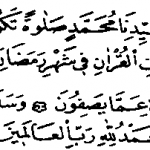 سَيِّدِنَا مُحَمَّدٍ صَلٰوةً
الْقُرْاٰنِ فِى شَهْرِ رَمَضَانَ
عَمَّا يَصِفُونَ ۞ وَسَلَ
مْدُ لِلّٰهِ رَبِّ الْعَالَمِينَ